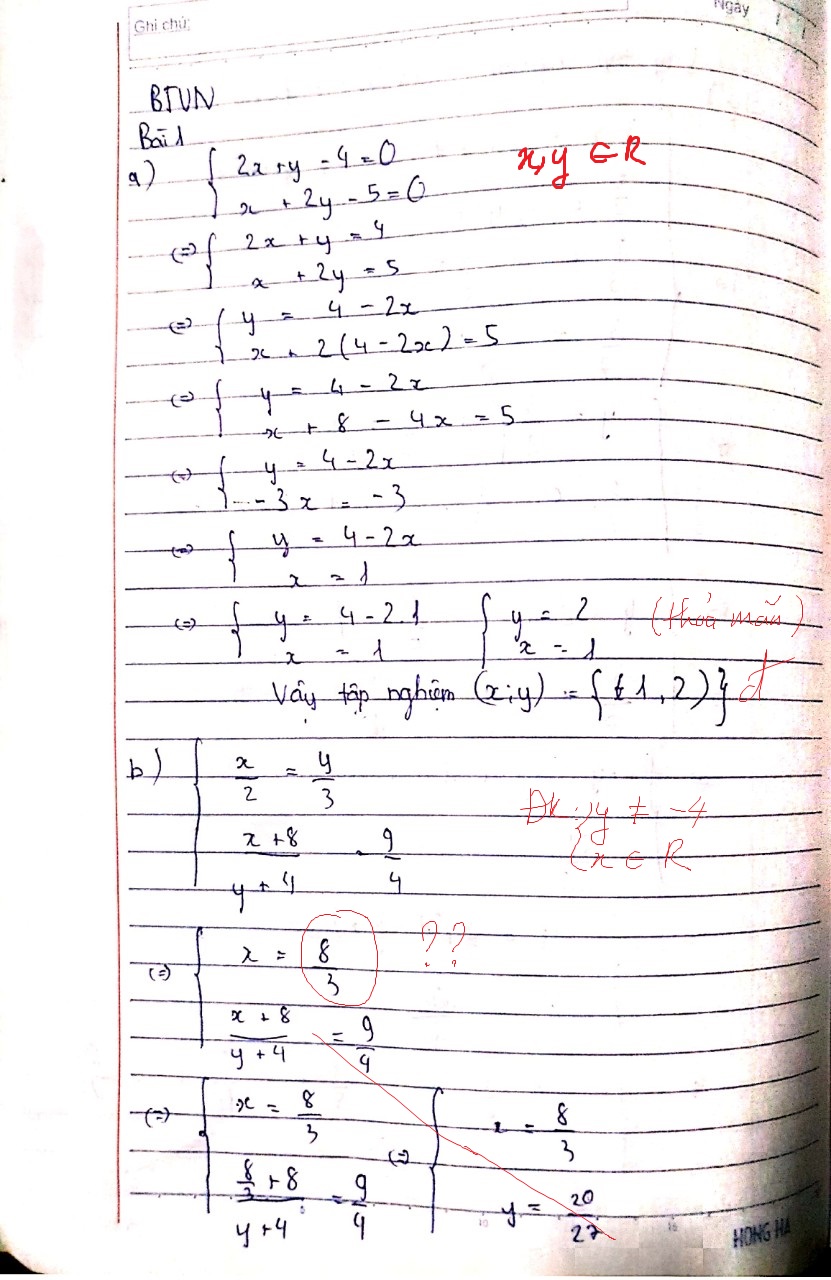 Ghi chú:
Ngày
BTVN
Bài 1
a) { 2x + y - 4 = 0
x, y ∈ R
x + 2y - 5 = 0
(=) { 2x + y = 4
x + 2y = 5
(=) { y = 4 - 2x
x + 2(4 - 2x) = 5
(=) { y = 4 - 2x
x + 8 - 4x = 5
(=) { y = 4 - 2x
-3x = -3
(=) { y = 4 - 2x
x = 1
(=) { y = 4 - 2.1 { y = 2 (thỏa mãn)
x = 1 x = 1
Vậy tập nghiệm (x;y) = {(1, 2)} đ
b) { x/2 = y/3
ĐK: { y ≠ -4
x ∈ R
x+8/y+4 = 9/4
(=) { x = 8/3 ??
x+8/y+4 = 9/4
(=) { x = 8/3 (=) { x = 8/3
8/3 + 8/y+4 = 9/4 y = 20/27
10 15
HONG HA